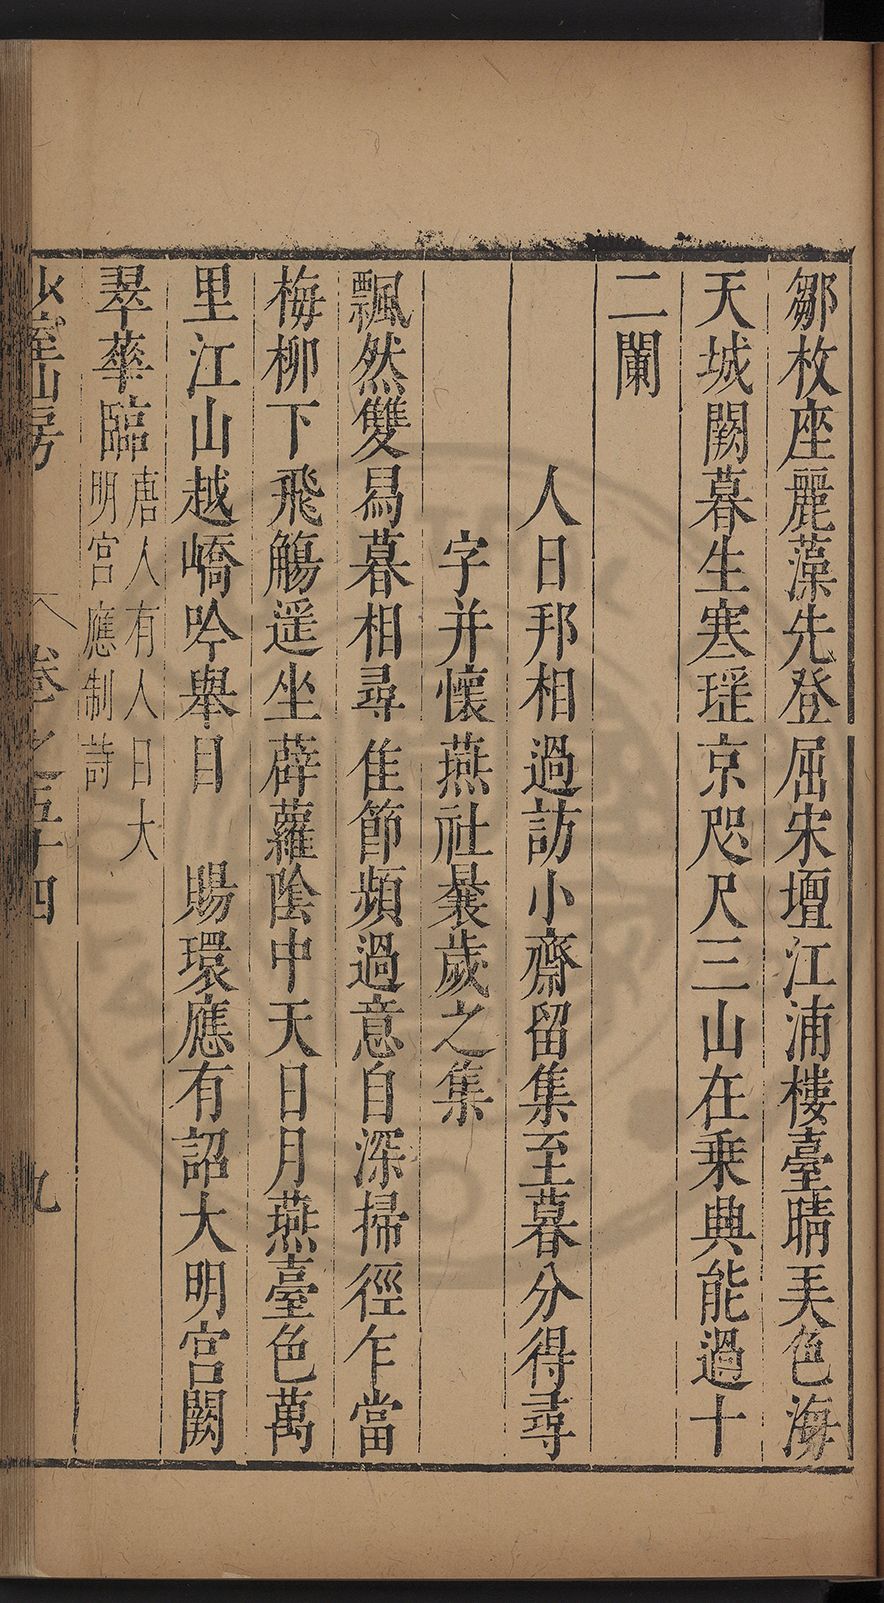 鄒枚座麗藻先登屈宋壇江浦樓臺晴美色海
天城闕暮生寒瑶京咫尺三山在乗興能過十
二闌
人日邦相過訪小齋留集至暮分得尋
字并懷燕社曩歲之集
飄然雙舄暮相尋隹節頻過意自深掃徑乍當
梅柳下飛觴遥坐薜蘿陰中天日月燕臺色萬
里江山越嶠吟舉目賜環應有詔大明宫闕
翠華臨唐人有人日大
明宫應制詩
少室山房
卷之五十四
九